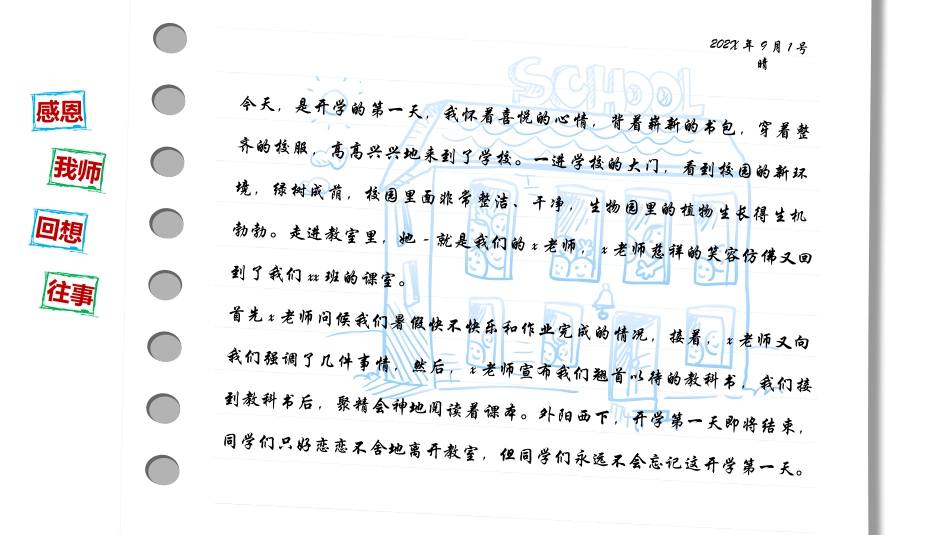 202X 年 9 月 1 号
晴
感恩
我师
回想
往事
SCHOOL
今天，是开学的第一天，我怀着喜悦的心情，背着崭新的书包，穿着整
齐的校服，高高兴兴地来到了学校。一进学校的大门，看到校园的新环
境，绿树成荫，校园里面非常整洁、干净，生物园里的植物生长得生机
勃勃。走进教室里，她－就是我们的 x 老师，x 老师慈祥的笑容仿佛又回
到了我们 xx 班的课室。
首先 x 老师问候我们暑假快不快乐和作业完成的情况，接着，x 老师又向
我们强调了几件事情，然后，x 老师宣布我们翘首以待的教科书，我们接
到教科书后，聚精会神地阅读着课本。外阳西下，开学第一天即将结束，
同学们只好恋恋不舍地离开教室，但同学们永远不会忘记这开学第一天。